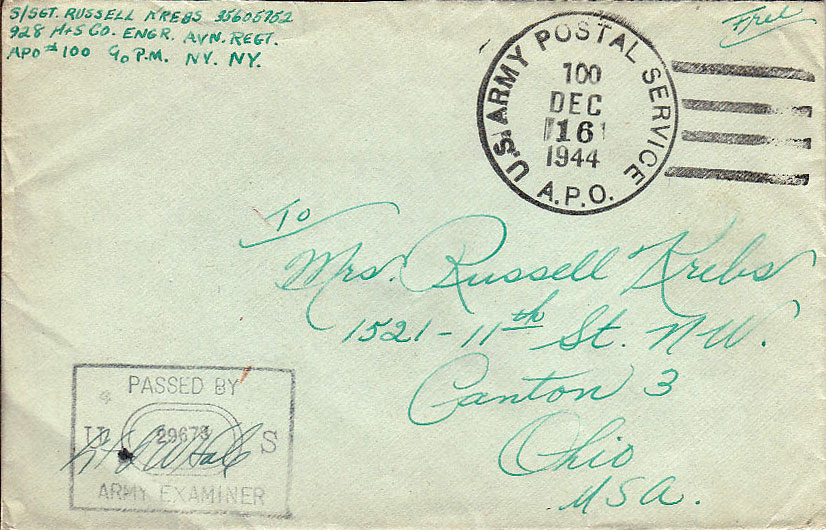 S/SGT. RUSSELL KREBS 35605752
928 H+S CO. ENGR. AVN. REGT.
APO #100 % P.M. NY. NY.
Free
U.S. ARMY POSTAL SERVICE
100
DEC
16
1944
A.P.O.
To
Mrs. Russell Krebs
1521-11th St. N.W.
Canton 3
Ohio
USA.
PASSED BY
29673
S
ARMY EXAMINER